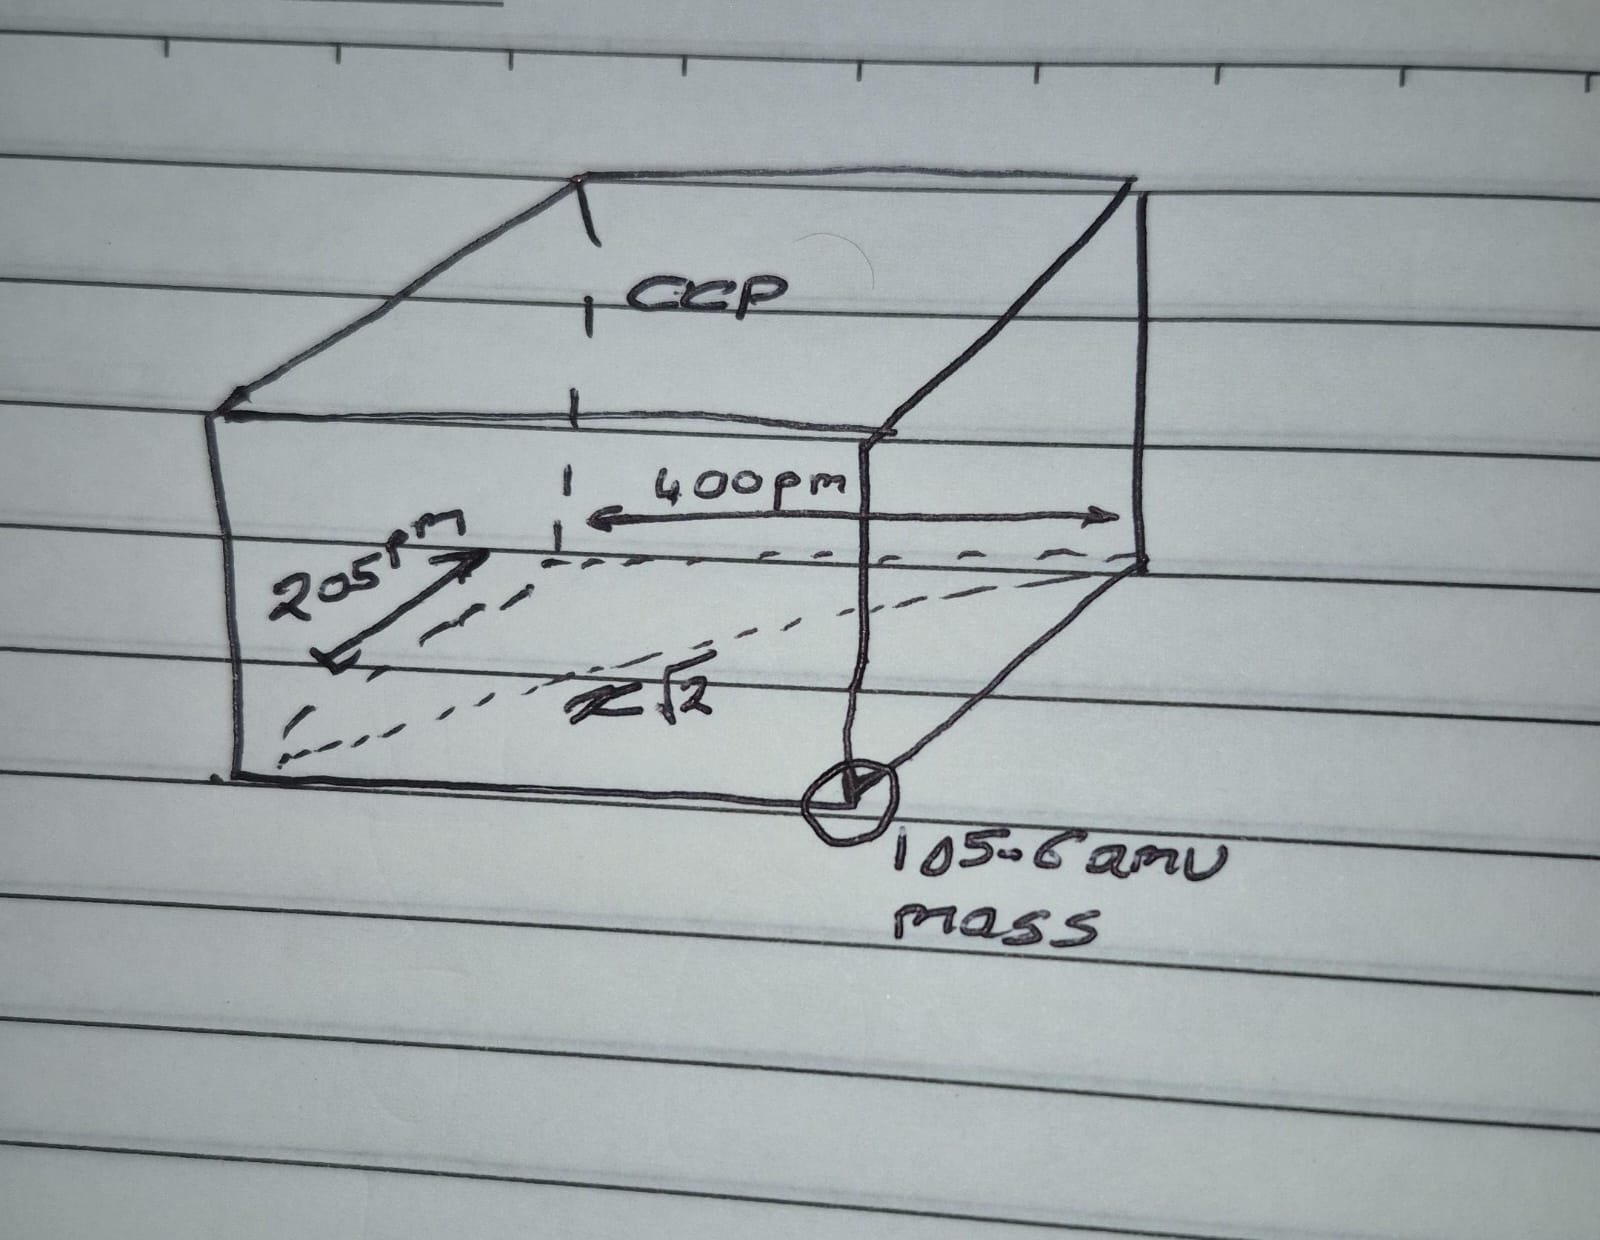 CCP
400pm
205pm
x√2
105.6amu
mass